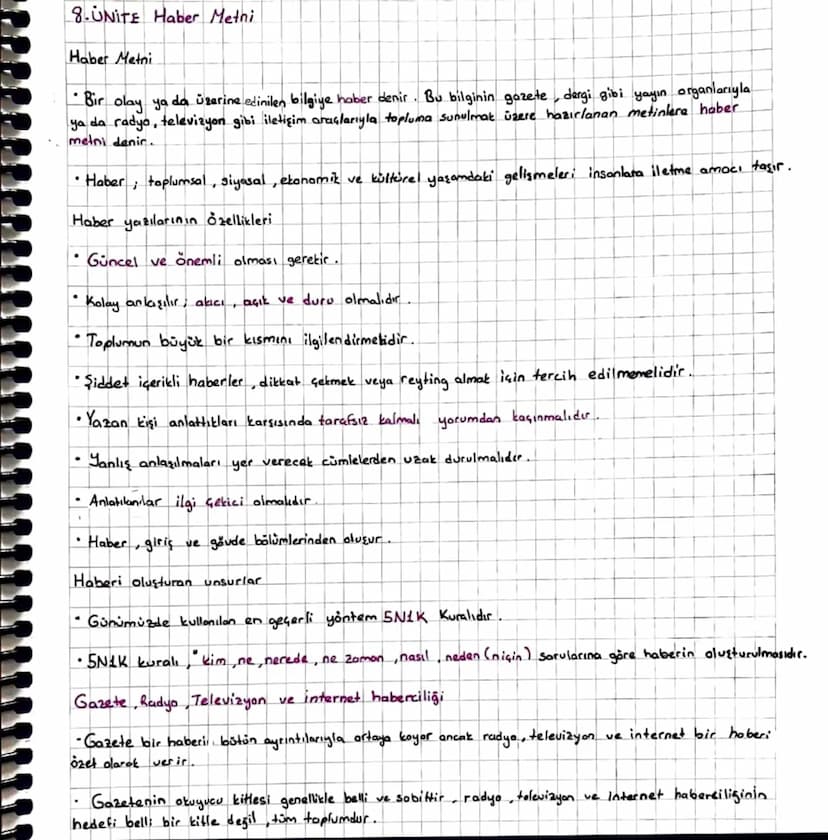 8.ÜNİTE Haber Metni
Haber Metni
• Bir olay ya da üzerine edinilen bilgiye haber denir. Bu bilginin gazete, dergi gibi yayın organlarıyla
ya da radyo, televizyon gibi iletişim araçlarıyla topluma sunulmak üzere hazırlanan metinlere haber
metni denir.
• Haber; toplumsal, siyasal, ekonomik ve kültürel yaşamdaki gelişmeleri insanlara iletme amacı taşır.
Haber yazılarının özellikleri
• Güncel ve önemli olması gerekir.
• Kolay anlaşılır; akıcı, açık ve duru olmalıdır.
• Toplumun büyük bir kısmını ilgilendirmelidir.
• Şiddet içerikli haberler, dikkat çekmek veya reyting almak için tercih edilmemelidir.
• Yazan kişi anlattıkları karşısında tarafsız kalmalı yorumdan kaçınmalıdır.
• Yanlış anlaşılmaları yer verecek cümlelerden uzak durulmalıdır.
• Anlatılanlar ilgi çekici olmalıdır.
• Haber, giriş ve gövde bölümlerinden oluşur.
Haberi oluşturan unsurlar
• Günümüzde kullanılan en geçerli yöntem 5N1K Kuralıdır.
• 5N1K kuralı, "kim, ne, nerede, ne zaman, nasıl, neden (niçin) sorularına göre haberin oluşturulmasıdır.
Gazete, Radyo, Televizyon ve internet haberciliği
- Gazete bir haberi bütün ayrıntılarıyla ortaya koyar ancak radyo, televizyon ve internet bir haberi
özet olarak verir.
• Gazetenin okuyucu kitlesi genellikle belli ve sabittir, radyo, televizyon ve Internet haberciliğinin
hedefi belli bir kitle değil, tüm toplumdur.